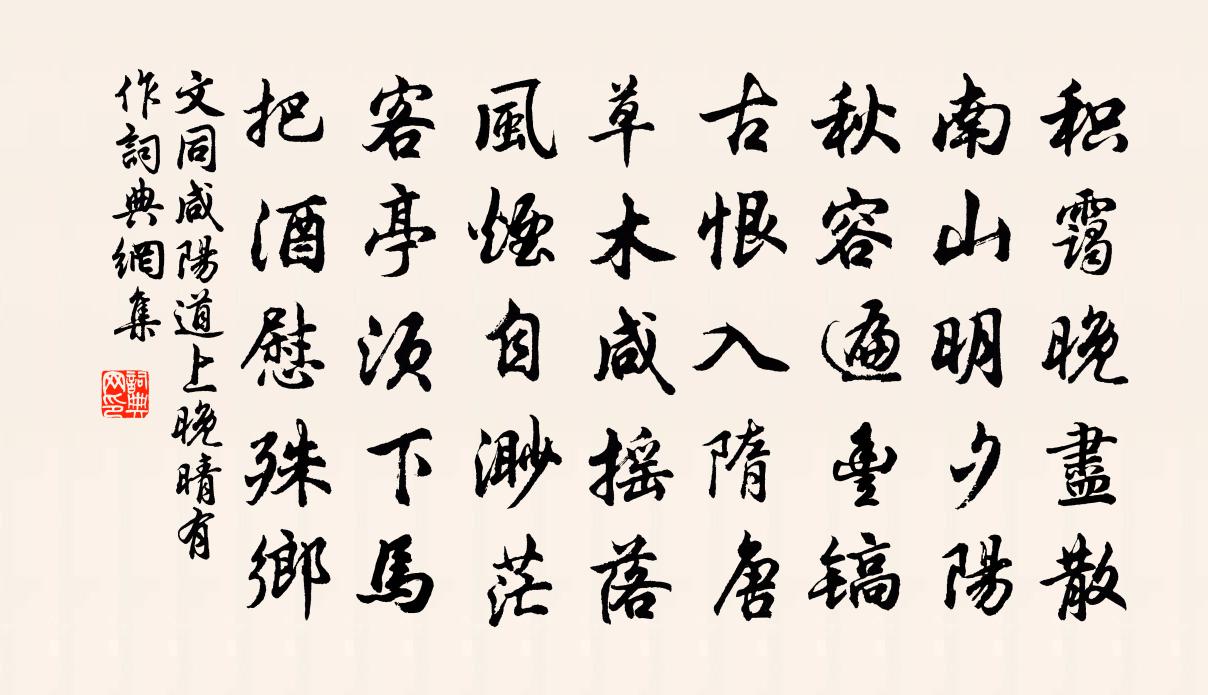 积靄晚盡散
南山明夕陽
秋容遍豊镐
古恨入隋唐
草木咸摇落
風煙自渺茫
客亭須下馬
把酒慰殊鄉
文同咸陽道上晚晴有
作詞典網集
詞典網印